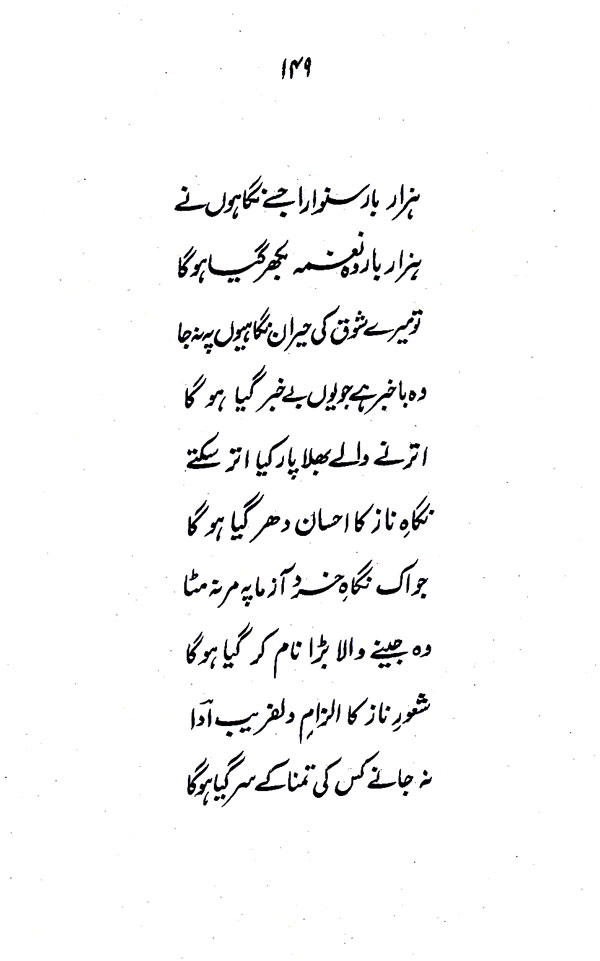 ۱۴۹
ہزار بار سنوارا جسے نگاہوں نے
ہزار بار وہ نغمہ بکھر گیا ہوگا
تو میرے شوق کی حیران نگاہیوں پہ نہ جا
وہ باخبر ہے جو یوں بے خبر گیا ہو گا
اترنے والے بھلا پار کیا اتر سکتے
نگاہِ ناز کا احسان دھر گیا ہو گا
جو اک نگاہِ خرد آزما پہ مر نہ مٹا
وہ جینے والا بڑا نام کر گیا ہوگا
شعورِ ناز کا الزامِ دلفریب اداؔ
نہ جانے کس کی تمنا کے سر گیا ہوگا